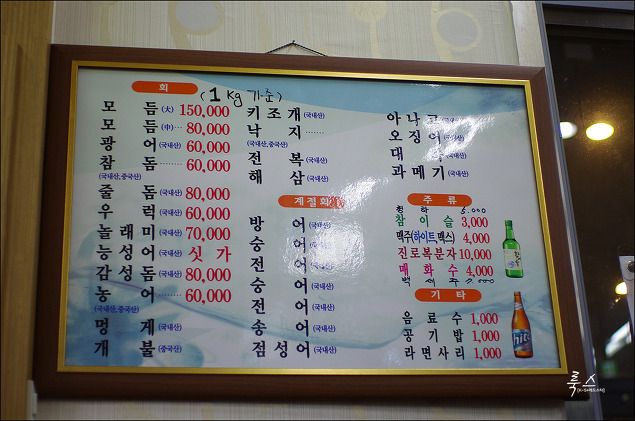 회
(1Kg 기준)
모듬(大) 150,000
모듬(中)··· 80,000
광어(국내산) 60,000
참돔··· 60,000
(국내산,중국산)
줄돔(국내산) 80,000
우럭(국내산) 60,000
놀래미(국내산) 70,000
능성어(국내산) 싯가
감성돔(국내산) 80,000
농어··· 60,000
(국내산,중국산)
멍게(국내산)
개불(중국산)
키조개(국내산)
낙지······
(국내산,중국산)
전복(국내산)
해삼(국내산)
계절회
방어(국내산)
숭어(국내산)
전어(국내산)
숭어(국내산)
전어(국내산)
송어(국내산)
점성어(국내산)
아나고(국내산)
오징어(국내산)
대(국내산)
과메기(국내산)
주류
청하 5,000
참이슬 3,000
맥주(하이트,맥스) 4,000
진로복분자 10,000
매화수 4,000
백세주 7,000
기타
음료수 1,000
공기밥 1,000
라면사리 1,000
hite
룩스